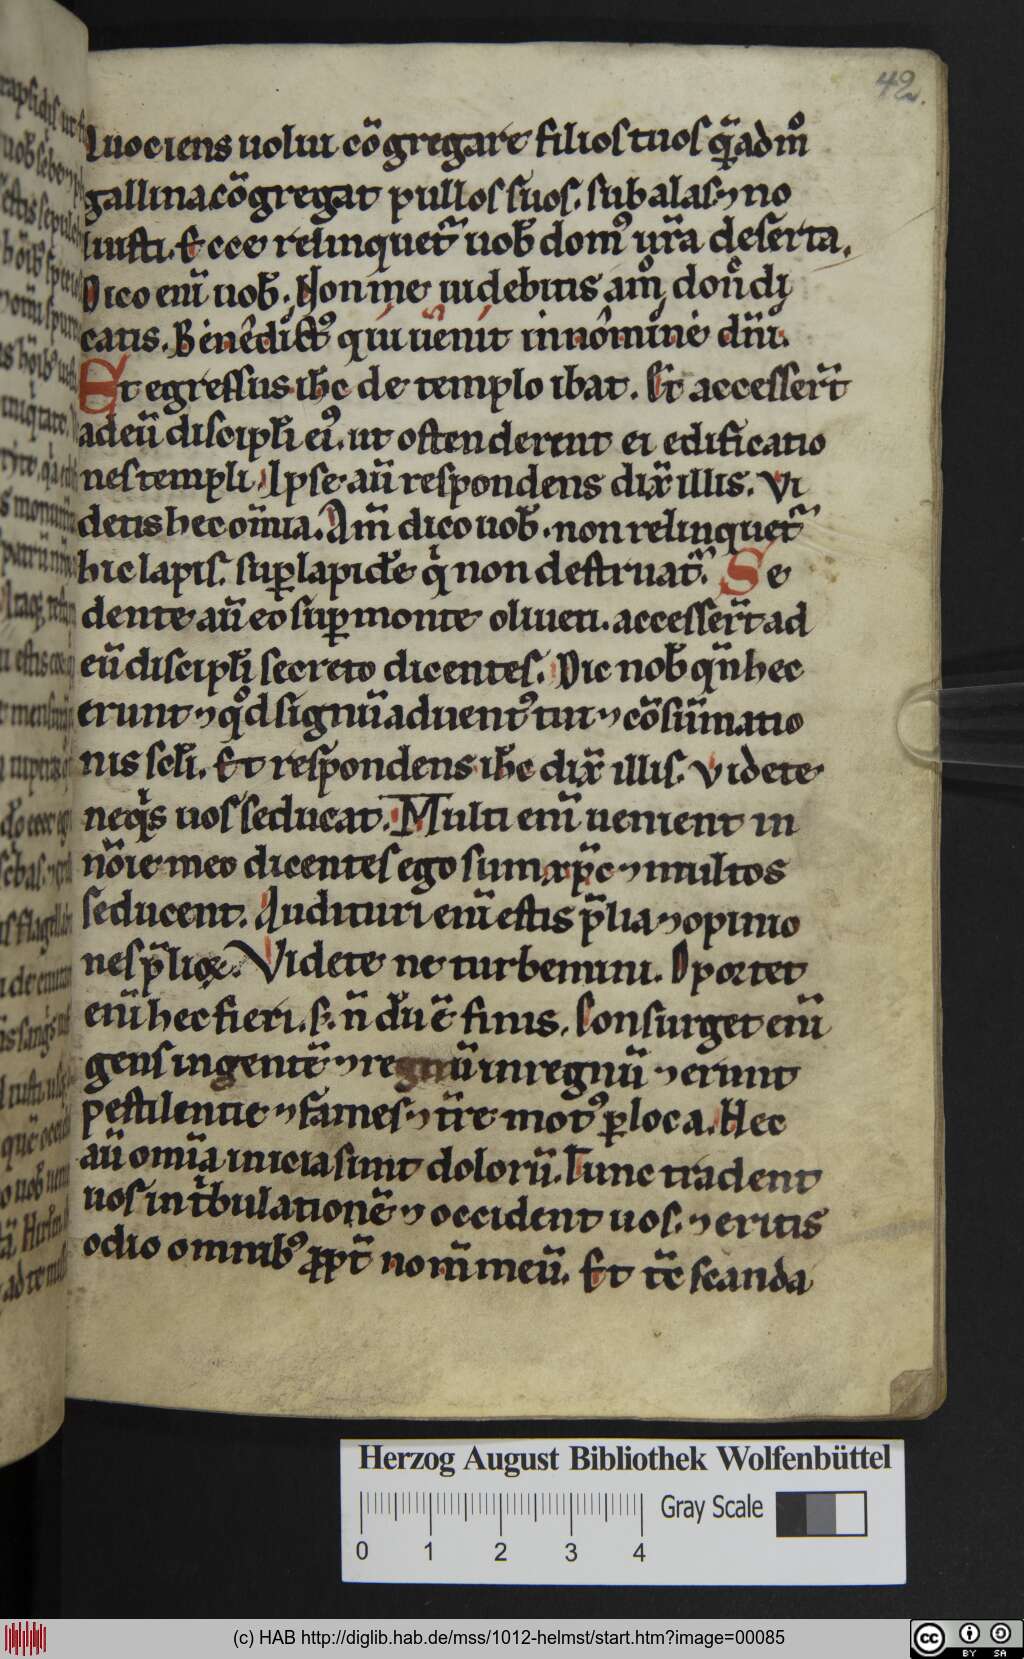 42.
Quociens uolui cōgregare filios tuos q̄admͦ
gallina cōgregat pullos suos. sub alas ⁊ no
luisti. Ecce relinquet᷑ uob̄ domꝰ ur̄a deserta.
Dico eni̅ uob̄. Non me uidebitis am̊ donͨ di
catis. Benedictꝰ qui uenit in nomine dn̄i.
Et egressus ih̄c de templo ibat. Et accesser̄t
ad eū discipl̄i eiꝰ. ut ostenderent ei edificatio
nes templi. Ipse aū respondens dix̄ illis. Vi
detis hec om̄ia. Am̄ dico uob̄. non relinquet᷑
hic lapis. suꝑ lapidē qͥ non destruat᷑. Se
dente aū eo suꝑ monte oliueti. accesser̄t ad
eū discipl̄i secreto dicentes. Dic nob̄ qn̄ hec
erunt ⁊ qͦd signū aduentꝰ tui ⁊ cōsūmatio
nis scl̄i. Et respondens ih̄c dix̄ illis. Videte
ne qͥs uos seducat. Multi eni̅ uenient in
nōie meo dicentes ego sum xp̄c ⁊ multos
seducent. Audituri eni̅ estis p̄lia ⁊ opinio
nes p̄lioꝝ. Videte ne turbemini. Oportet
eni̅ hec fieri. s; n̄ dū ē finis. Consurget eni̅
gens in gentē ⁊ regnū in regnū ⁊ erunt
pestilentie ⁊ fames ⁊ t̄re motꝰ ꝑ loca. Hec
aū omīa inicia sunt dolorū. Tunc tradent
uos in tͥbulationē ⁊ occident uos. ⁊ eritis
odio omnibꝰ ꝓpt̄ nom̄ meū. Et tc̄ scanda
Herzog August Bibliothek Wolfenbüttel
Gray Scale
0 1 2 3 4
(c) HAB http://diglib.hab.de/mss/1012-helmst/start.htm?image=00085
cc BY SA